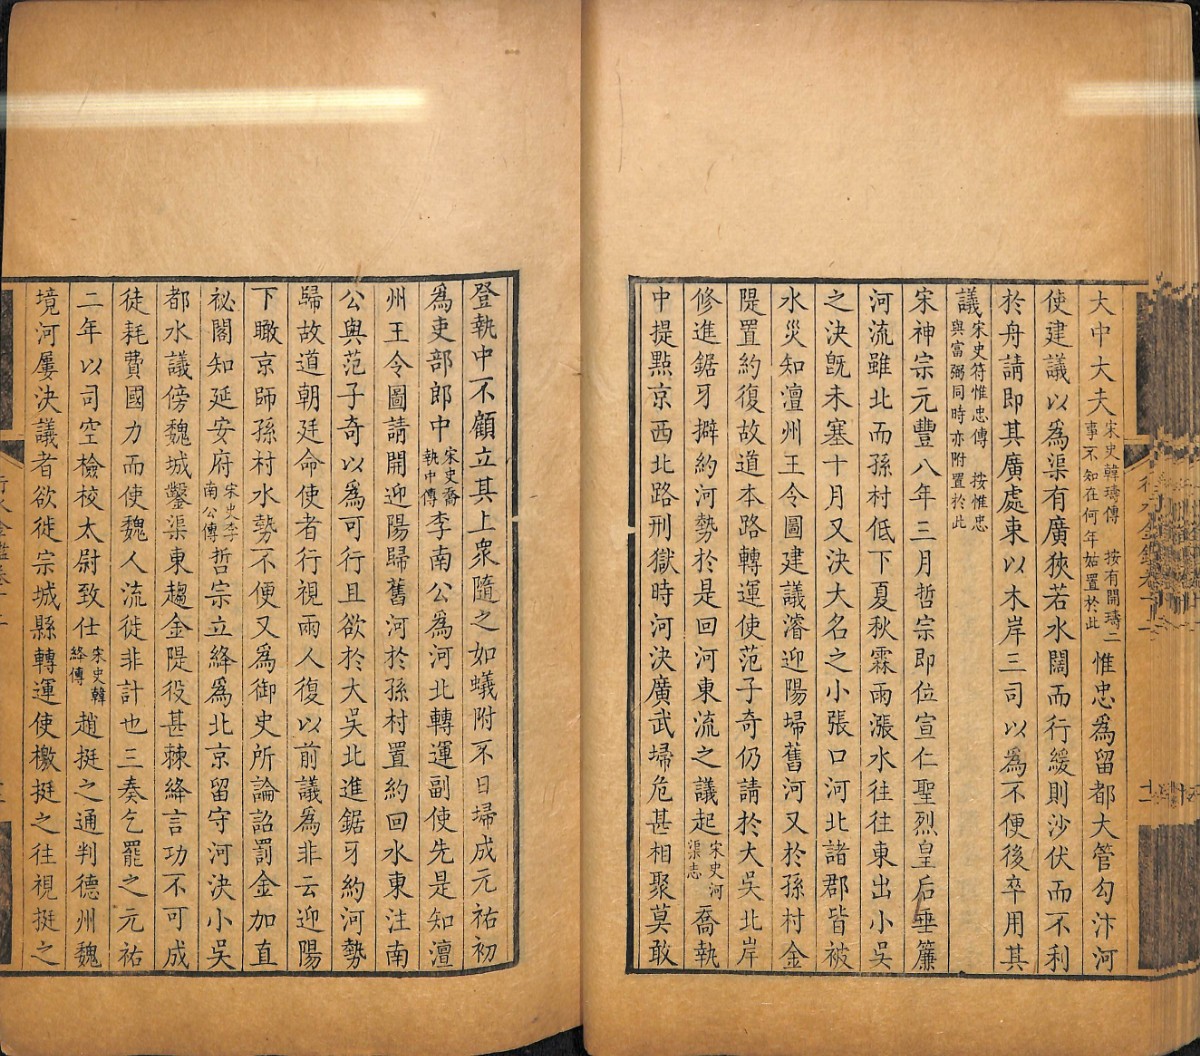 大中大夫宋史韓璹傳 按有開璹二事不知在何年姑置於此惟忠爲留都大管勾汴河
使建議以爲渠有廣狹若水闊而行緩則沙伏而不利
於舟請即其廣處束以木岸三司以爲不便後卒用其
議宋史符惟忠傳 按惟忠與富弼同時亦附置於此
宋神宗元豐八年三月哲宗即位宣仁聖烈皇后垂簾
河流雖北而孫村低下夏秋霖雨漲水往往東出小吳
之決旣未塞十月又決大名之小張口河北諸郡皆被
水災知澶州王令圖建議濬迎陽埽舊河又於孫村金
隄置約復故道本路轉運使范子奇仍請於大吳北岸
修進鋸牙擗約河勢於是回河東流之議起宋史河渠志喬執
中提點京西北路刑獄時河決廣武埽危甚相聚莫敢
登執中不顧立其上衆隨之如蟻附不日埽成元祐初
爲吏部郎中宋史喬執中傳李南公爲河北轉運副使先是知澶
州王令圖請開迎陽歸舊河於孫村置約回水東注南
公與范子奇以爲可行且欲於大吳北進鋸牙約河勢
歸故道朝廷命使者行視兩人復以前議爲非云迎陽
下瞰京師孫村水勢不便又爲御史所論詔罰金加直
祕閣知延安府宋史李南公傳哲宗立絳爲北京留守河決小吳
都水議傍魏城鑿渠東趨金隄役甚棘絳言功不可成
徒耗費國力而使魏人流徙非計也三奏乞罷之元祐
二年以司空檢校太尉致仕宋史韓絳傳趙挺之通判德州魏
境河屢決議者欲徙宗城縣轉運使檄挺之往視挺之